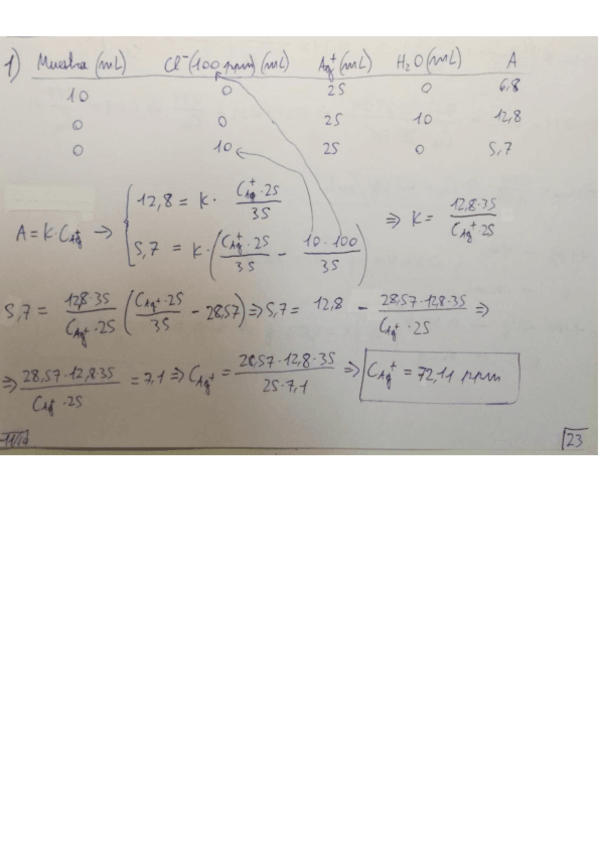 1) Muestra (mL) Cl⁻(100 ppm)(mL) Ag⁺(mL) H₂O(mL) A
10 0 25 0 6,8
0 0 25 10 12,8
0 10 25 0 5,7
A = K·C_Ag⁺ → { 12,8 = K · (C_Ag⁺·25)/35 ⇒ K = (12,8·35)/(C_Ag⁺·25)
5,7 = K·((C_Ag⁺·25)/35 − (10·100)/35)
5,7 = (12,8·35)/(C_Ag⁺·25) ((C_Ag⁺·25)/35 − 28,57) ⇒ 5,7 = 12,8 − (28,57·12,8·35)/(C_Ag⁺·25) ⇒
⇒ (28,57·12,8·35)/(C_Ag⁺·25) = 7,1 ⇒ C_Ag⁺ = (28,57·12,8·35)/(25·7,1) ⇒ C_Ag⁺ = 72,11 ppm
23